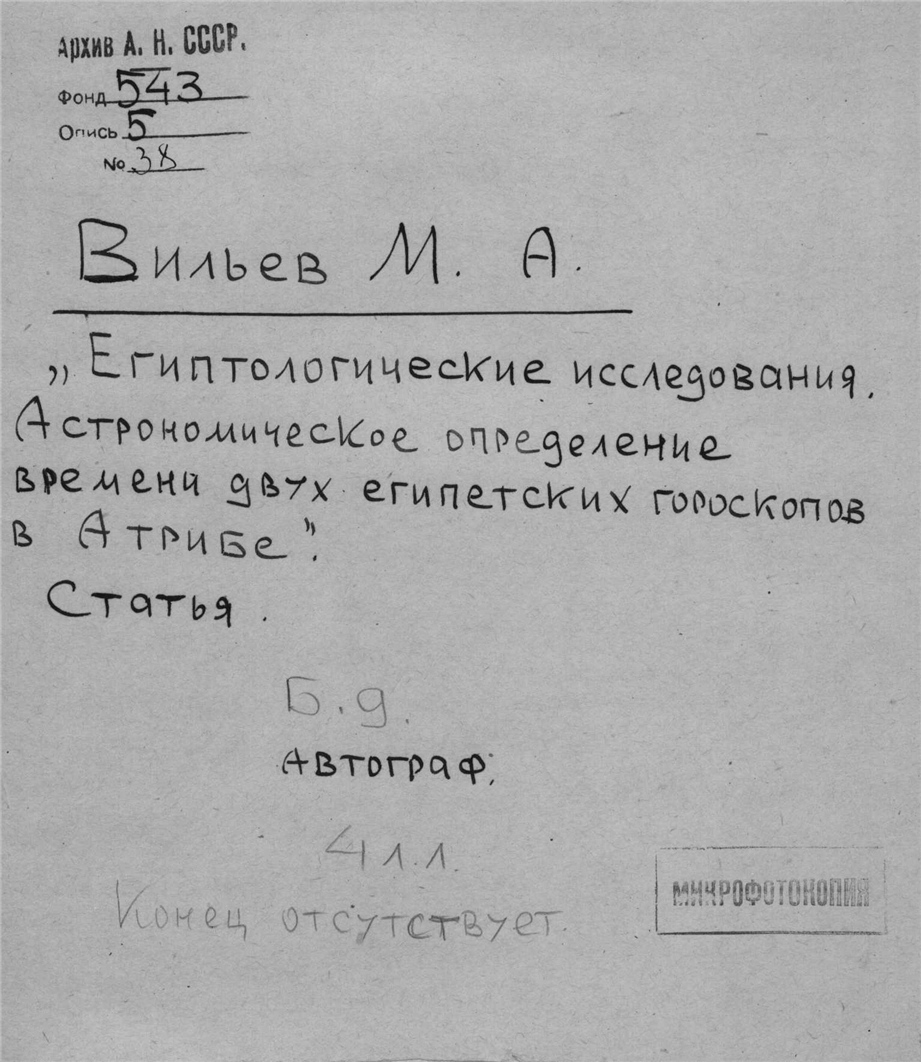 Архив А. Н. СССР.
Фонд 543
Опись 5
№ 38
Вильев М. А.
„Египтологические исследования.
Астрономическое определение
времени двух египетских гороскопов
в Атрибе".
Статья.
Б.д.
Автограф.
4 л.л.
Конец отсутствует.
МИКРОФОТОКОПИЯ